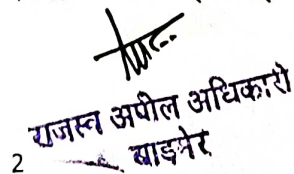 राजस्व अपील अधिकारी
2 बाड़मेर